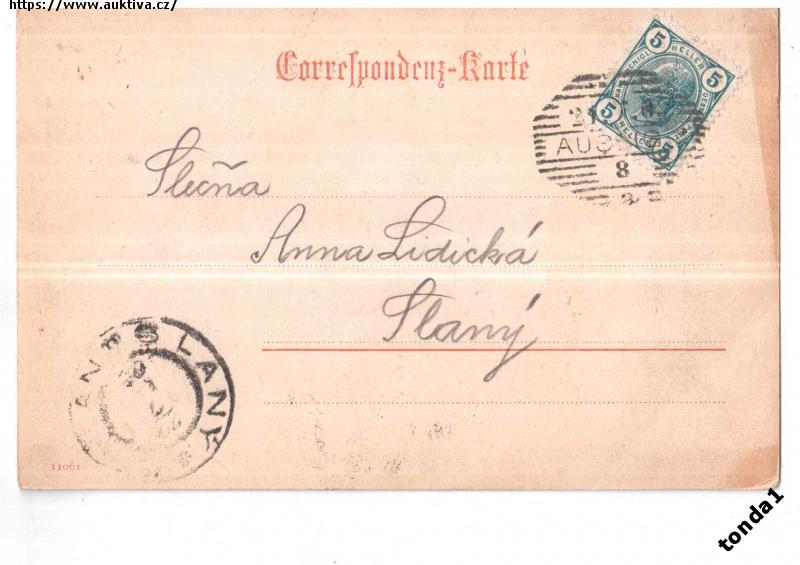 https://www.auktiva.cz/
Correspondenz-Karte
5 HELLER 5
5 HELLER 5
21
AUS
8
Slečna
Anna Lidická
Slaný
SLANY
11061
tonda1